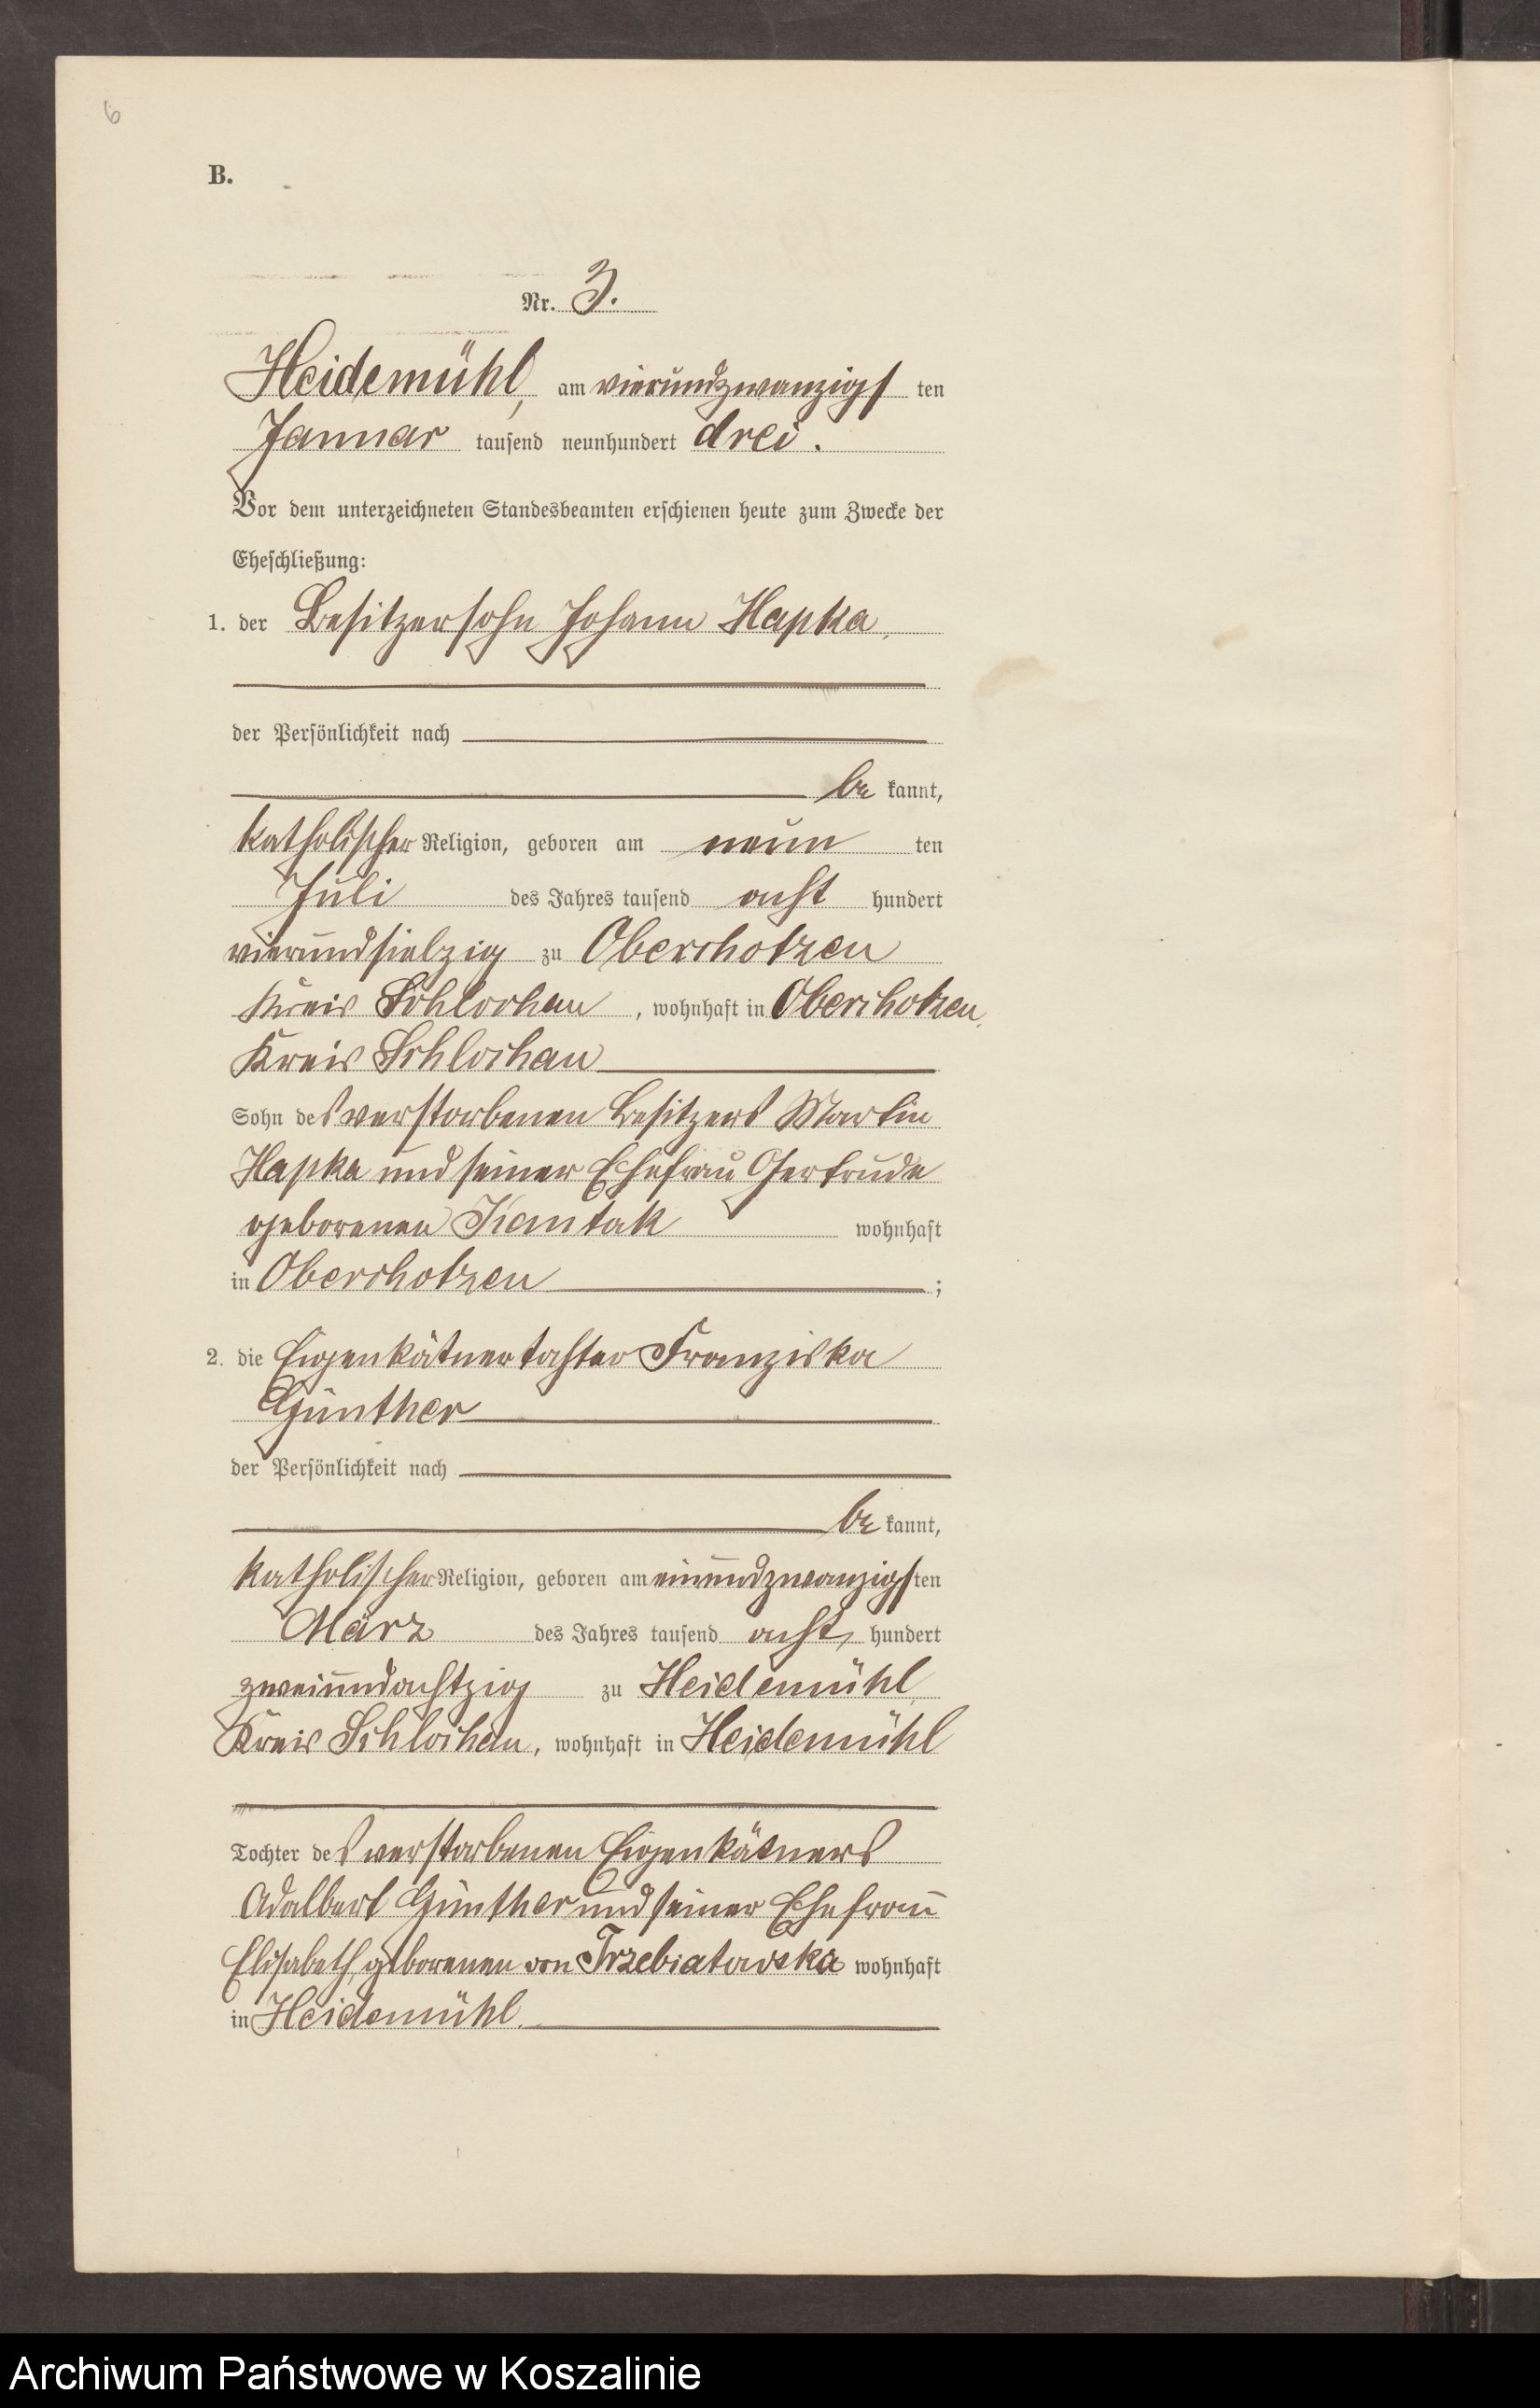 6
B.
Nr. 3.
Heidemühl, am vierundzwanzigs ten
Januar tausend neunhundert drei.
Vor dem unterzeichneten Standesbeamten erschienen heute zum Zwecke der
Eheschließung:
1. der Besitzersohn Johann Hapka,
der Persönlichkeit nach
be kannt,
katholischer Religion, geboren am neun ten
Juli des Jahres tausend acht hundert
vierundsiebzig zu Oberchotzen
Kreis Schlochau, wohnhaft in Oberchotzen,
Kreis Schlochau
Sohn des verstorbenen Besitzers Martin
Hapka und seiner Ehefrau Gertrude
geborenen Kantak wohnhaft
in Oberchotzen ;
2. die Eigenkätnertochter Franziska
Günther
der Persönlichkeit nach
be kannt,
katholischer Religion, geboren am einundzwanzigsten
März des Jahres tausend acht hundert
zweiundachtzig zu Heidemühl,
Kreis Schlochau, wohnhaft in Heidemühl
Tochter des verstorbenen Eigenkätners
Adalbert Günther und seiner Ehefrau
Elisabeth, geborenen von Trzebiatowska wohnhaft
in Heidemühl.
Archiwum Państwowe w Koszalinie